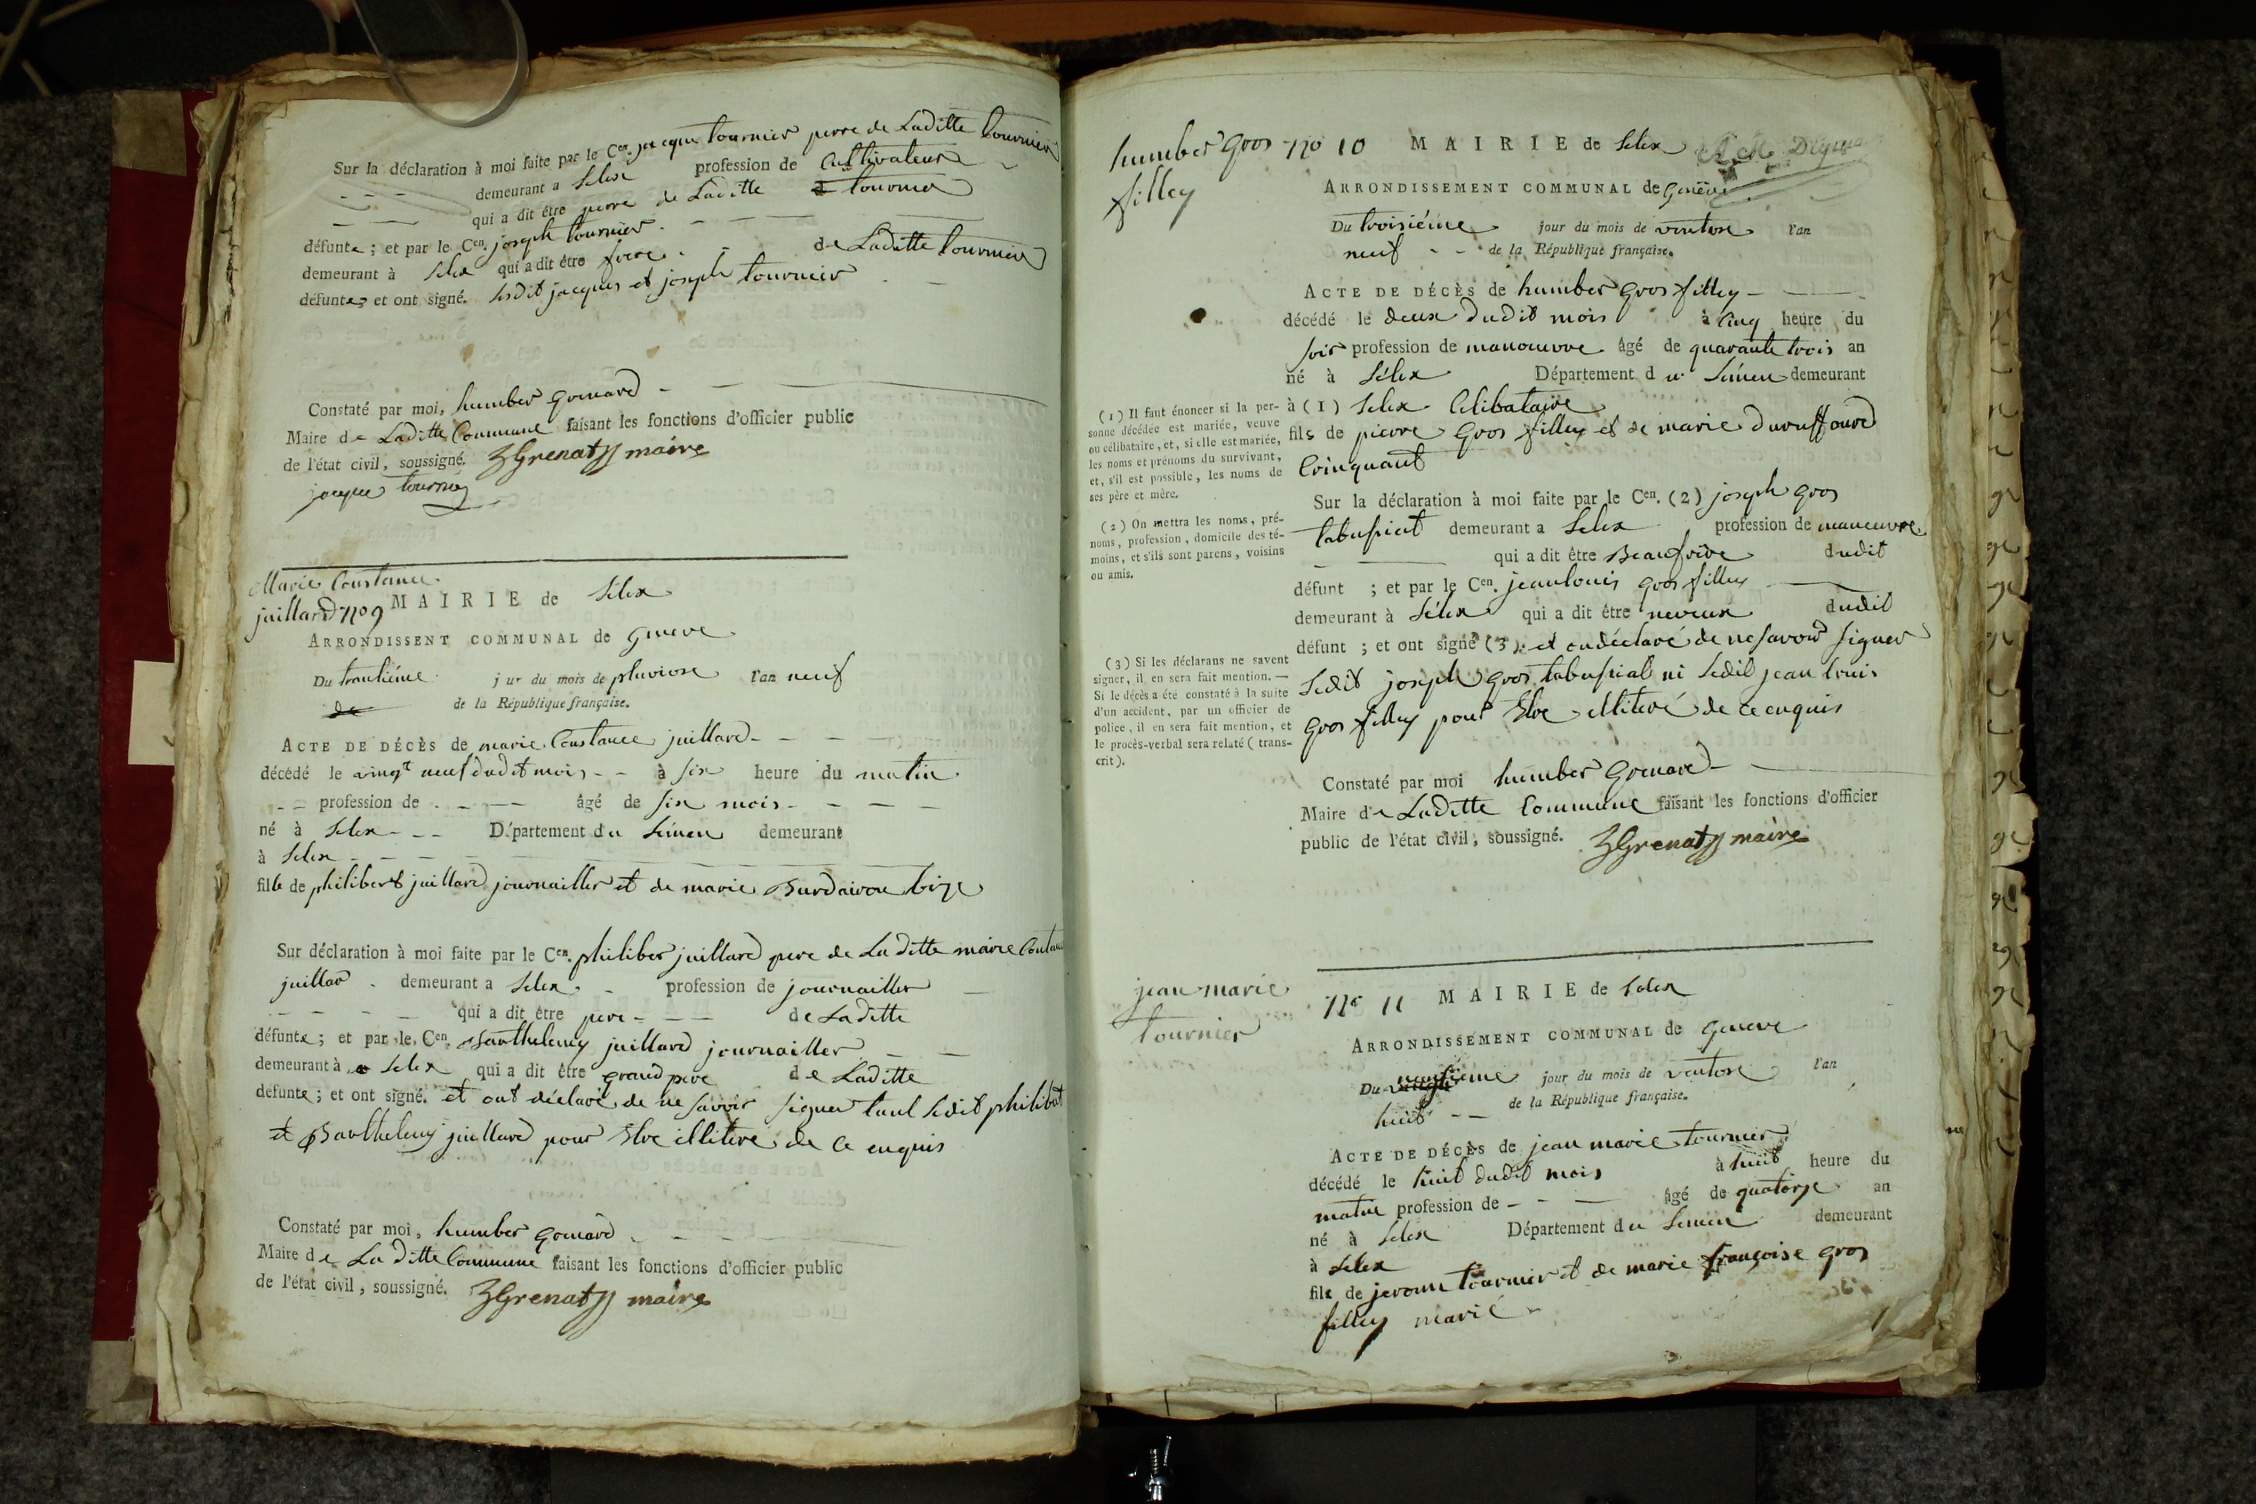 Sur la déclaration à moi faite par le Cen. jacque tournier perre de Laditte tournier
demeurant a Selex profession de Cultivateur
qui a dit être perre de Laditte tournier
défunte ; et par le Cen. joseph tournier
demeurant à Selex qui a dit être frere de Laditte tournier
défunte, et ont signé. Lesdit jacques et joseph tournier
Constaté par moi, humber Grenard
Maire de Laditte Commune faisant les fonctions d'officier public
de l'état civil, soussigné. Grenat maire
jacque tournier
Marie Constance
juillard no 9
MAIRIE de Selex
ARRONDISSENT COMMUNAL de Geneve
Du trentiéme j ur du mois de pluviose l'an neuf
de la République française.
ACTE DE DÉCÈS de marie Constance juillard
décédé le vingt neuf dudit mois à six heure du matin
profession de âgé de six mois
né à Selex Département du Léman demeurant
à Selex
fille de philibert juillard journallier et de marie
Sur déclaration à moi faite par le Cen. philiber juillard pere de La ditte marie
juillar demeurant a Selex profession de journallier
qui a dit être pere de Laditte
défunte ; et par le Cen. Barthelemy juillard journallier
demeurant à Selex qui a dit être grand pere de Laditte
defunte ; et ont signé. et ont déclaré de ne savoir signer tant Ledit philibert
et Barthelemy juillard pour Etre illiteré de ce enquis
Constaté par moi, humber Grenard
Maire de La ditte Commune faisant les fonctions d'officier public
de l'état civil, soussigné. Grenat maire
humber Gros
filley
no 10 MAIRIE de Selex
ARRONDISSEMENT COMMUNAL de Genève
Du troisiéme jour du mois de ventose l'an
neuf de la République française.
ACTE DE DÉCÈS de humber Gros filley
décédé le deux dudit mois à Cinq heure du
soir profession de manoeuvre âgé de quarante trois an
né à Sélex Département du Léman demeurant
à (1) Selex Celibataire
fils de pierre Gros filley et de marie
(1) Il faut énoncer si la per-
sonne décédée est mariée, veuve
ou célibataire, et, si elle est mariée,
les noms et prénoms du survivant,
et, s'il est possible, les noms de
ses père et mère.
Sur la déclaration à moi faite par le Cen. (2) joseph gros
demeurant a Selex profession de manoeuvre
qui a dit être Beaufrère dudit
(2) On mettra les noms, pré-
noms, profession, domicile des té-
moins, et s'ils sont parens, voisins
ou amis.
défunt ; et par le Cen. jean louis gros filley
demeurant à Sélex qui a dit être neveux dudit
défunt ; et ont signé (3). et on déclaré de ne savoir signer
Ledit joseph gros ni Ledit jean louis
gros filley pour Etre illiteré de ce enquis
(3) Si les déclarans ne savent
signer, il en sera fait mention. —
Si le décès a été constaté à la suite
d'un accident, par un officier de
police, il en sera fait mention, et
le procès-verbal sera relaté (trans-
crit).
Constaté par moi humber Grenard
Maire de Laditte Commune faisant les fonctions d'officier
public de l'état civil, soussigné. Grenat maire
jean marie
tournier
no 11 MAIRIE de Selex
ARRONDISSEMENT COMMUNAL de Geneve
Du neufieme jour du mois de ventose l'an
huit de la République française.
ACTE DE DÉCÈS de jean marie tournier
décédé le huit dudit mois à huit heure du
matin profession de âgé de quatorze an
né à Selex Département du Léman demeurant
à Selex
fils de jerome tournier et de marie françoise gros
filley marié